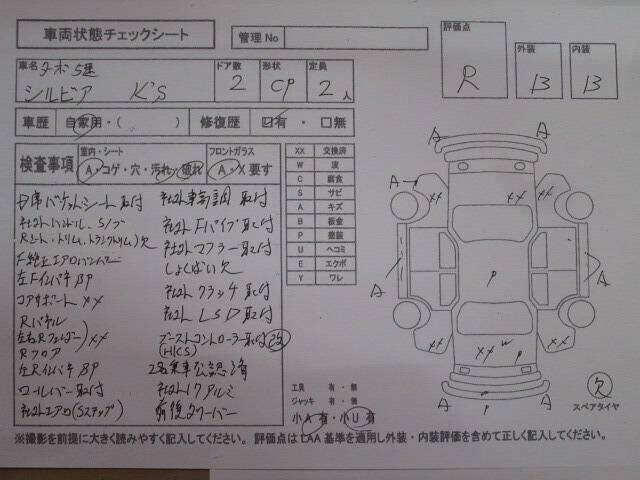 車両状態チェックシート
管理No
車名 ターボ 5速
シルビア K'S
ドア数 2
形状 CP
定員 2人
評価点 R
外装 B
内装 B
車歴 自家用・( )
修復歴 ☑有・□無
検査事項
室内・シート
A・コゲ・穴・汚れ・破れ
フロントガラス
A・X要す
D席バケットシート取付
社外ハンドル、S/ノブ
Rシート、トリム、トランクトリム)欠
F純正エアロバンパー
左FインパネBP
コアサポートXX
Rパネル
左右Rフェンダー)XX
Rフロア
左RインパネBP
ロールバー取付
社外エアロ(Sステップ)
社外車高調取付
社外Fパイプ取付
社外マフラー取付
しょくばい欠
社外クラッチ取付
社外LSD取付
ブーストコントローラー取付
(HKS)
2名乗車公認済
社外17アルミ
前後タワーバー
XX 交換済
W 波
C 腐食
S サビ
A キズ
B 板金
P 塗装
U ヘコミ
E エクボ
Y ワレ
工具 有・無
ジャッキ 有・無
小A有・小U有
A
A
A
XX
XX
XX
A
A
P
XX
XX
W
P
A
A
P
欠
スペアタイヤ
※撮影を前提に大きく読みやすく記入してください。 評価点はLAA基準を適用し外装・内装評価を含めて正しく記入してください。